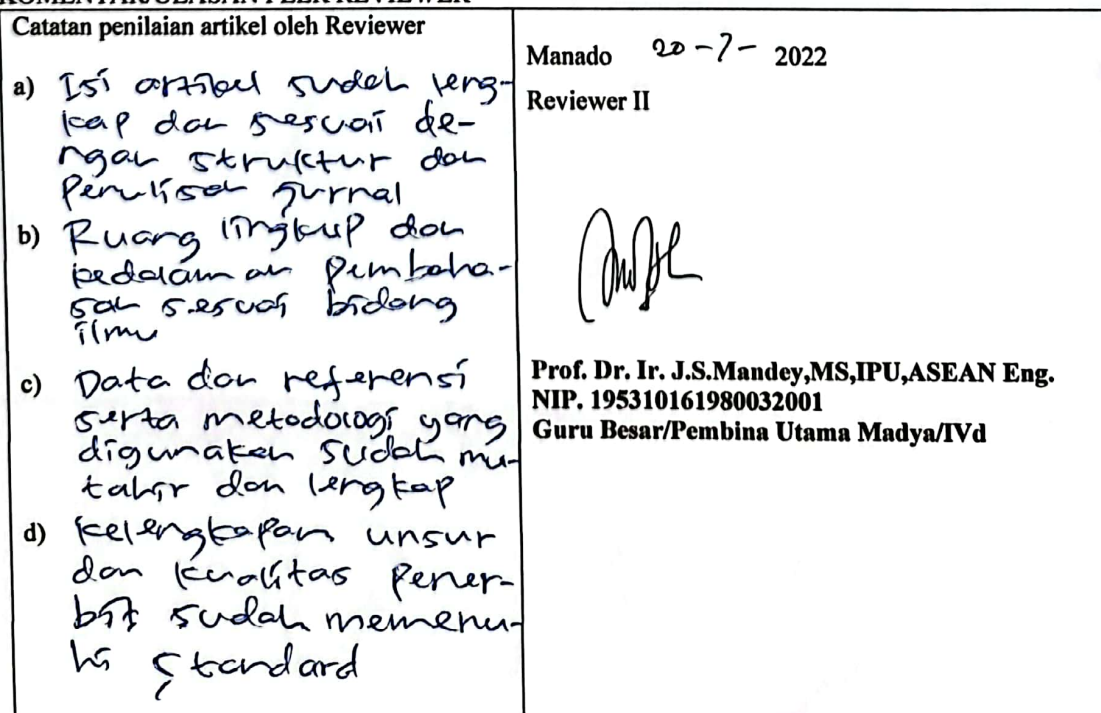 KOMENTAR/ULASAN PEER REVIEWER
Catatan penilaian artikel oleh Reviewer
a) Isi artikel sudah leng-
kap dan sesuai de-
ngan struktur dan
Penulisan jurnal
b) Ruang lingkup dan
kedalaman Pembaha-
san sesuai bidang
ilmu
c) Data dan referensi
serta metodologi yang
digunakan sudah mu-
tahir dan lengkap
d) Kelengkapan unsur
dan kualitas Pener-
bit sudah memenu-
hi standard
Manado 20-7- 2022
Reviewer II
Prof. Dr. Ir. J.S.Mandey,MS,IPU,ASEAN Eng.
NIP. 195310161980032001
Guru Besar/Pembina Utama Madya/IVd